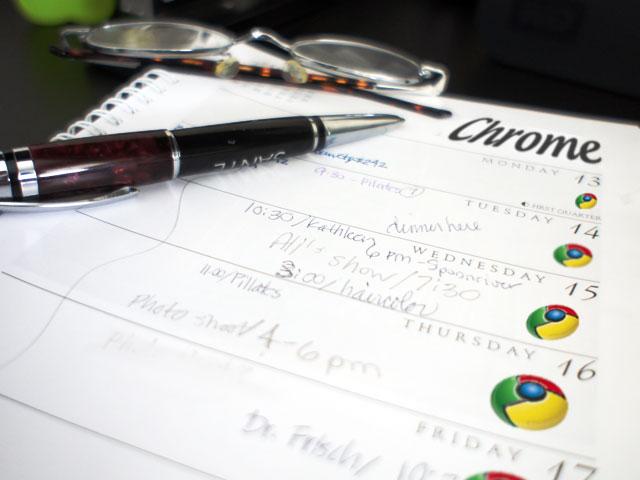 Chrome
MONDAY 13
9:30 - Pilates
FIRST QUARTER
TUESDAY 14
10:30/Kathleen dinner here
6pm - Spoonriver
WEDNESDAY 15
Ali's show/7:30
3:00/haircolor
THURSDAY 16
11:00/Pilates
Photo shoot/4-6pm
FRIDAY 17
Dr. Frisch/